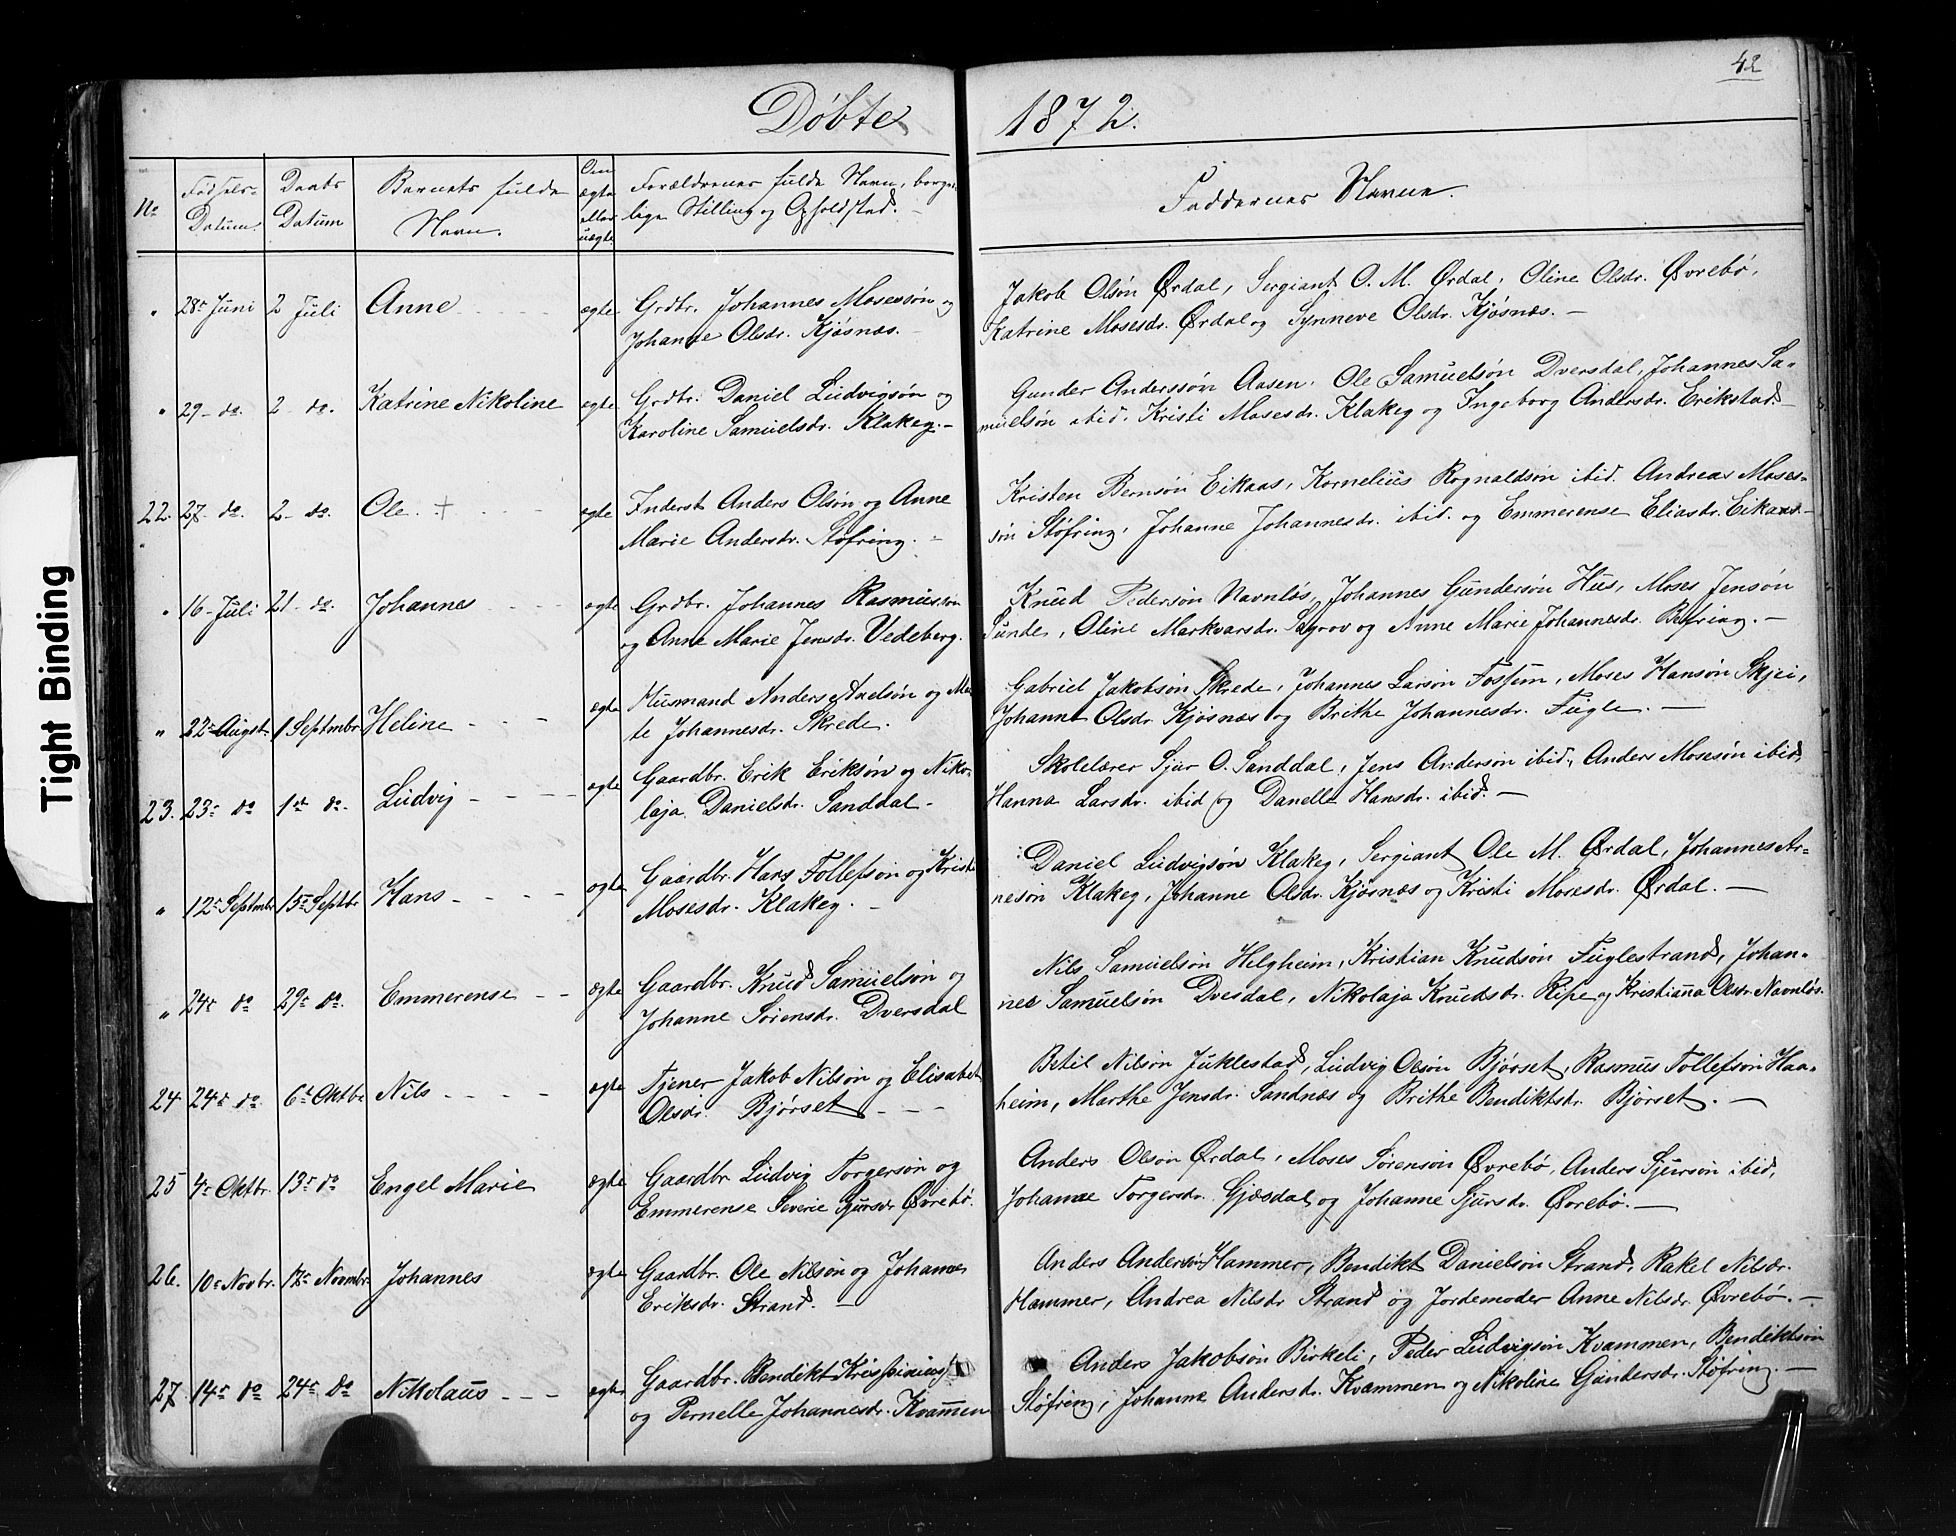 42
Døbte 1872.
No
Fødsels-
Datum.
Daabs
Datum
Barnets fulde
Navn.
Om
ægte
eller
uægte
Forældrenes fulde Navn, borger-
lige Stilling og Opholdsted. -
Faddernes Navne.
" 28de Juni 2 Juli Anne - - - - ægte Grdbr. Johannes Mosessøn og
Johanne Olsdr. Kjøsnæs. -
Jakob Olsøn Ørdal, Sergiant O. M. Ørdal, Oline Olsdr. Øvrebø,
Katrine Mosesdr. Ørdal og Synneve Olsdr. Kjøsnæs. -
" 29 - do. 2 - do. Katrine Nikoline ægte Grdbr. Daniel Ludvigsøn og
Karoline Samuelsdr. Klakeg. -
Gunder Anderssøn Aasen, Ole Samuelsøn Dversdal, Johannes Sa-
muelsøn ibid. Kristi Mosesdr. Klakeg og Ingeborg Andersdr. Erikstad -
22. 27 - do. 2 - do. Ole. + - - - ægte Inderst Anders Olsøn og Anne
Marie Andersdr. Støfring. -
Kristen Bernsøn Eikaas, Kornelius Rognaldsøn ibid. Andreas Moses-
søn Støfring, Johanne Johannesdr. ibid. og Emmerense Eliasdr. Eikaas -
" 16 - Juli 21 - do. Johannes - - - ægte Grdbr. Johannes Rasmussøn
og Anne Marie Jensdr. Vedeberg.
Knud Pedersøn Navnløs, Johannes Gundersøn Hus, Moses Jensøn
Sunde, Oline Markvarsdr. Sægrov og Anne Marie Johannesdr. Befring. -
" 22de August 1 Septmbr Heline - - - ægte Husmand Anders Axelsøn og Me-
te Johannesdr. Skrede.
Gabriel Jakobsøn Skrede, Johannes Larsøn Fossem, Moses Hansøn Skjei,
Johanne Olsdr. Kjøsnæs og Brithe Johannesdr. Fugle. -
23. 23de do 1ste do. Ludvig - - - - ægte Gaardbr. Erik Eriksøn og Niko-
laja Danielsdr. Sanddal -
Skolelærer Sjur O. Sanddal, Jens Andersøn ibid, Anders Mosesøn ibid,
Hanna Larsdr. ibid og Danelle Hansdr. ibid. -
" 12te Septmbr 15de Septbr Hans - - - - ægte Gaardbr. Hans Tollefsøn og Kristi
Mosesdr. Klakeg. -
Daniel Ludvigsøn Klakeg, Sergiant Ole M. Ørdal, Johannes Ar-
nesøn Klakeg, Johanne Olsdr. Kjøsnæs og Kristi Mosesdr. Ørdal. -
" 24de do 29de do. Emmerense - - ægte Gaardbr. Knud Samuelsøn og
Johanne Sørensdr. Dversdal
Nils Samuelsøn Helgheim, Kristian Knudsøn Fuglestrand, Johan-
nes Samuelsøn Dvesdal, Nikolaja Knudsdr. Ripe og Kristianna Olsdr. Navnløs.
24 24de do 6te Oktbr Nils - - - - ægte Tjener Jakob Nilsøn og Elisabet
Olsdr. Bjørset - - -
Betil Nilsøn Juklestad, Ludvig Olsøn Bjørset, Rasmus Tollefsøn Haa-
heim, Marthe Jensdr. Sandnæs og Brithe Bendiktsdr. Bjørset. -
25 4de Oktbr. 13de do Engel Marie ægte Gaardbr. Ludvig Torgersøn og
Emmerense Severie Sjursdr Øvrebø.
Anders Olsøn Ørdal, Moses Sørensøn Øvrebø, Anders Sjursøn ibid,
Johanne Torgersdr. Gjæsdal, og Johanne Sjursdr. Øvrebø. -
26. 10de Novbr. 17de Novmbr Johannes ægte Gaardbr. Ole Nilsøn og Johanne
Eriksdr. Strand. -
Anders Andersøn Hammer, Bendikt Danielsøn Strand, Rakel Nilsdr.
Hammer, Andrea Nilsdr Strand og Jordemoder Anne Nilsdr. Øvrebø. -
27. 14de do 24de do Nikolaus - - - ægte Gaardbr. Bendikt
og Pernelle Johannesdr. Kvammen
Anders Jakobsøn Birkeli, Peder Ludvigsøn Kvammen, Bendiktsøn
Støfring, Johanne Andersdr. Kvammen og Nikoline Gundersdr. Støfring. -
Tight Binding